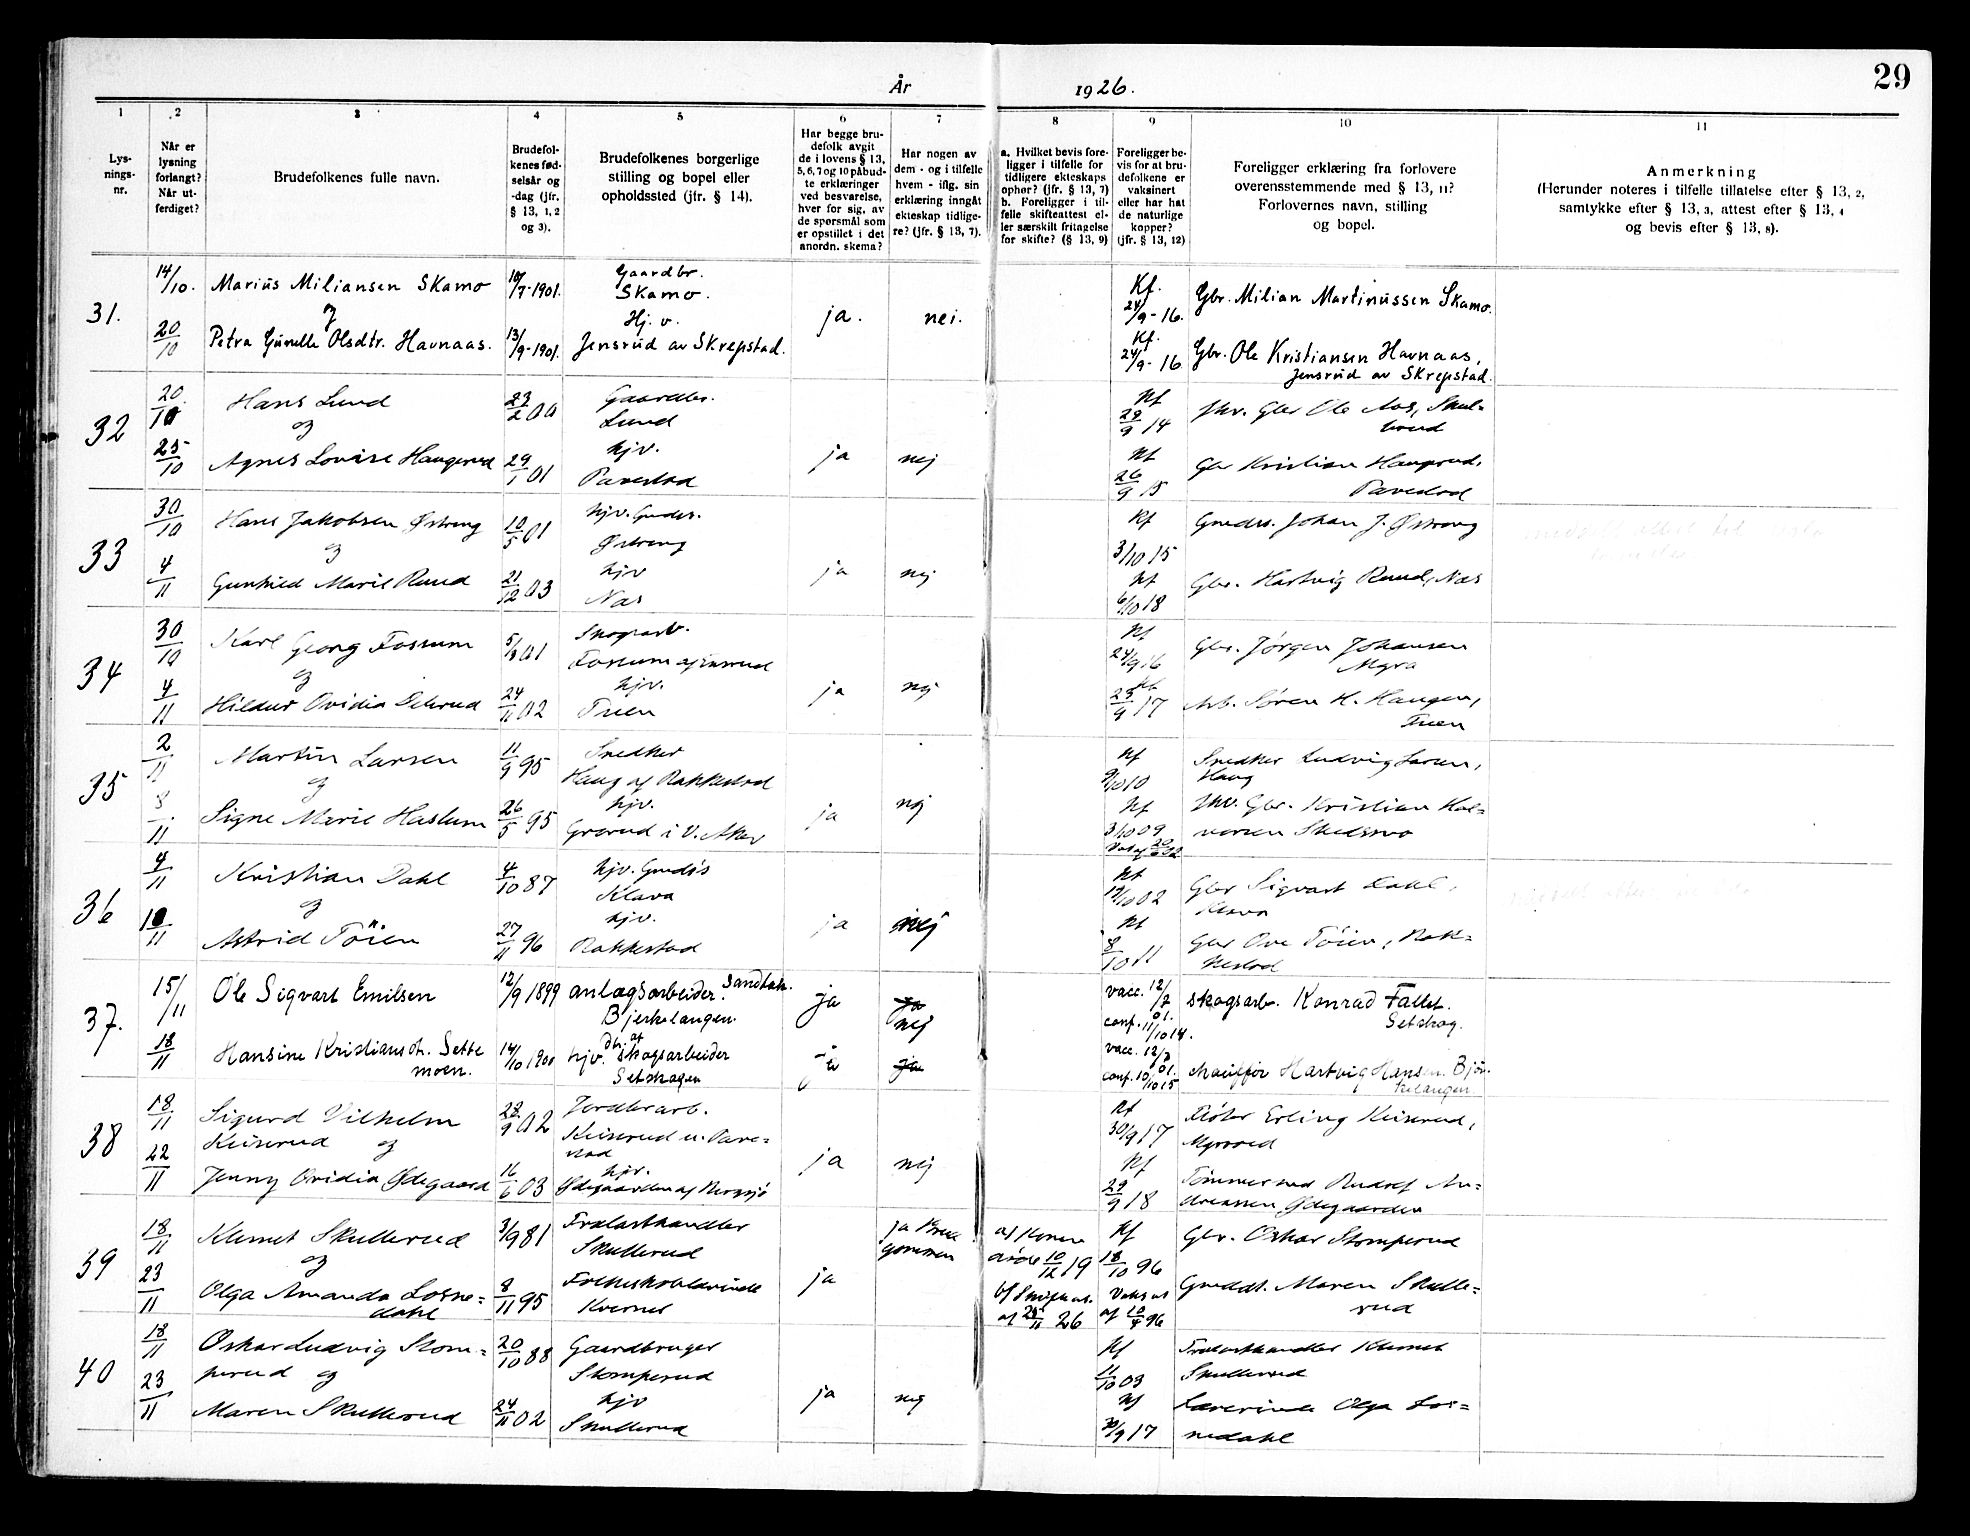 År 1926.
29
1 2 3 4 5 6 7 8 9 10 11
Lys-
nings-
nr.
Når er
lysning
forlangt?
Når ut-
ferdiget?
Brudefolkenes fulle navn.
Brudefol-
kenes fød-
selsår og
-dag (jfr.
§ 13, 1, 2
og 3).
Brudefolkenes borgerlige
stilling og bopel eller
opholdssted (jfr. § 14).
Har begge bru-
defolk avgit
de i lovens § 13,
5, 6, 7 og 10 påbud-
te erklæringer
ved besvarelse,
hver for sig, av
de spørsmål som
er opstillet i det
anordn. skema?
Har nogen av
dem - og i tilfelle
hvem - iflg. sin
erklæring inngåt
ekteskap tidlige-
re? (jfr. § 13, 7).
a. Hvilket bevis fore-
ligger i tilfelle for
tidligere ekteskaps
ophør? (jfr. § 13, 7)
b. Foreligger i til-
felle skifteattest el-
ler særskilt fritagelse
for skifte? (§ 13, 9)
Foreligger be-
vis for at bru-
defolkene er
vaksinert
eller har hat
de naturlige
kopper?
(jfr. § 13, 12)
Foreligger erklæring fra forlovere
overensstemmende med § 13, 11?
Forlovernes navn, stilling
og bopel.
Anmerkning
(Herunder noteres i tilfelle tillatelse efter § 13, 2,
samtykke efter § 13, 3, attest efter § 13, 4
og bevis efter § 13, 8).
31.
14/10.
Marius Miliansen Skamo
og
10/7-1901.
Gaardbr.
Skamo.
20/10
Petra Gunelle Olsdtr. Havnaas.
13/9-1901.
Hj. v.
Jensrud av Skrepstad.
ja.
nei.
Kf.
24/9-16.
Gbr. Milian Martinussen Skamo.
Kf.
24/9-16
Gbr. Ole Kristiansen Havnaas,
Jensrud av Skrepstad.
32
20/10
Hans Lund
og
23/2 00
Gaardbr.
Lund
25/10
Agnes Lovise Haugerud
29/1 01
hjv.
Pavestad
ja
nej
Kf
29/9 14
fhv. Gbr Ole Aas,
Kf
26/9 15
Gbr Kristian Haugerud,
Pavestad
33
30/10
Hans Jakobsen Østreng
og
10/5 01
hjv. Gmds.
Østreng
4/11
Gunhild Marie Ruud
21/12 03
hjv
Næs
ja
nej
Kf
3/10 15
Gmds. Johan J. Østreng
Kf
6/10 18
Gbr. Hartvig Ruud, Næs
34
30/10
Karl Georg Fossum
og
Skogsarb.
4/11
Hildur Ovidia
24/11 02
hjv.
Tuen
ja
nej
Kf
24/9 16
Gbr. Jørgen Johansen
Myra
Kf
23/9 17
Arb. Søren H. Haugen,
Tuen
35
2/11
Martin Larsen
og
11/9 95
Snedker
Haug af Rakkestad
8/11
Signe Marie Haslum
26/5 95
hjv.
Grorud i V. Aker
ja
nej
Kf
9/10 10
Snedker Ludvig Larsen,
Haug
Kf
3/10 09
fhv. Gbr. Kristian Hal-
vorsen Skedsmo
36
4/11
Kristian Dahl
og
4/10 87
hjv. Gmds
Klava
10/11
Astrid Töien
27/11 96
hjv.
Rakkestad
ja
nej
Kf
19/10 02
Gbr Sigvart Dahl,
Klava
Kf
8/10 11
Gbr Ove Töien, Rak-
kestad
37.
15/11
Ole Sigvart Emilsen
12/9 1899
anlægsarbeider. Sandbak.
Bjerkelangen.
18/11
Hansine Kristiansdt. Sette
moen.
14/10 1900
hjv. dtr. af
skogsarbeider
Setskogen
ja
ja
nej
ja
ja
vacc. 12/7 01.
conf. 11/10 14.
skogsarb. Konrad Fallet.
Setskog.
vacc. 12/7 01.
conf. 10/10 15
chauffør Hartvig Hansen. Bjør-
kelangen
38
18/11
Sigurd Vilhelm
Keiserud og
23/9 02
Jordbr.arb.
Keiserud u. Pave-
stad
22/11
Jenny Ovidia Ødegaard
16/6 03
hjv.
Ødegaarden af
ja
nej
Kf
30/9 17
Fløter Erling Keiserud,
Kf
29/9 18
Tømmermd Rudolf An-
dreassen Ødegaarden
39
18/11
Klemet Skullerud
og
3/9 81
Trælasthandler
Skullerud
23/11
Olga Amanda Losne-
dahl
8/11 95
Folkeskolelærerinde
Kvernes
ja
ja Brud-
gommen
a) Konen
døde 10/12 19
b) Skifteat.
af 23/11 26
Kf
18/10 96
Vaks at
af 10/4 96
Gbr. Oskar Stomperud
Gmddt. Maren Skulle-
rud
40
18/11
Oskar Ludvig Stom-
perud og
20/10 88
Gaardbruger
Stomperud
23/11
Maren Skullerud
24/11 02
hjv
Skullerud
ja
nej
Kf
11/10 03
Trælasthandler Klemet
Skullerud
Kf
30/9 17
Lærerinde Olga Los-
nedahl